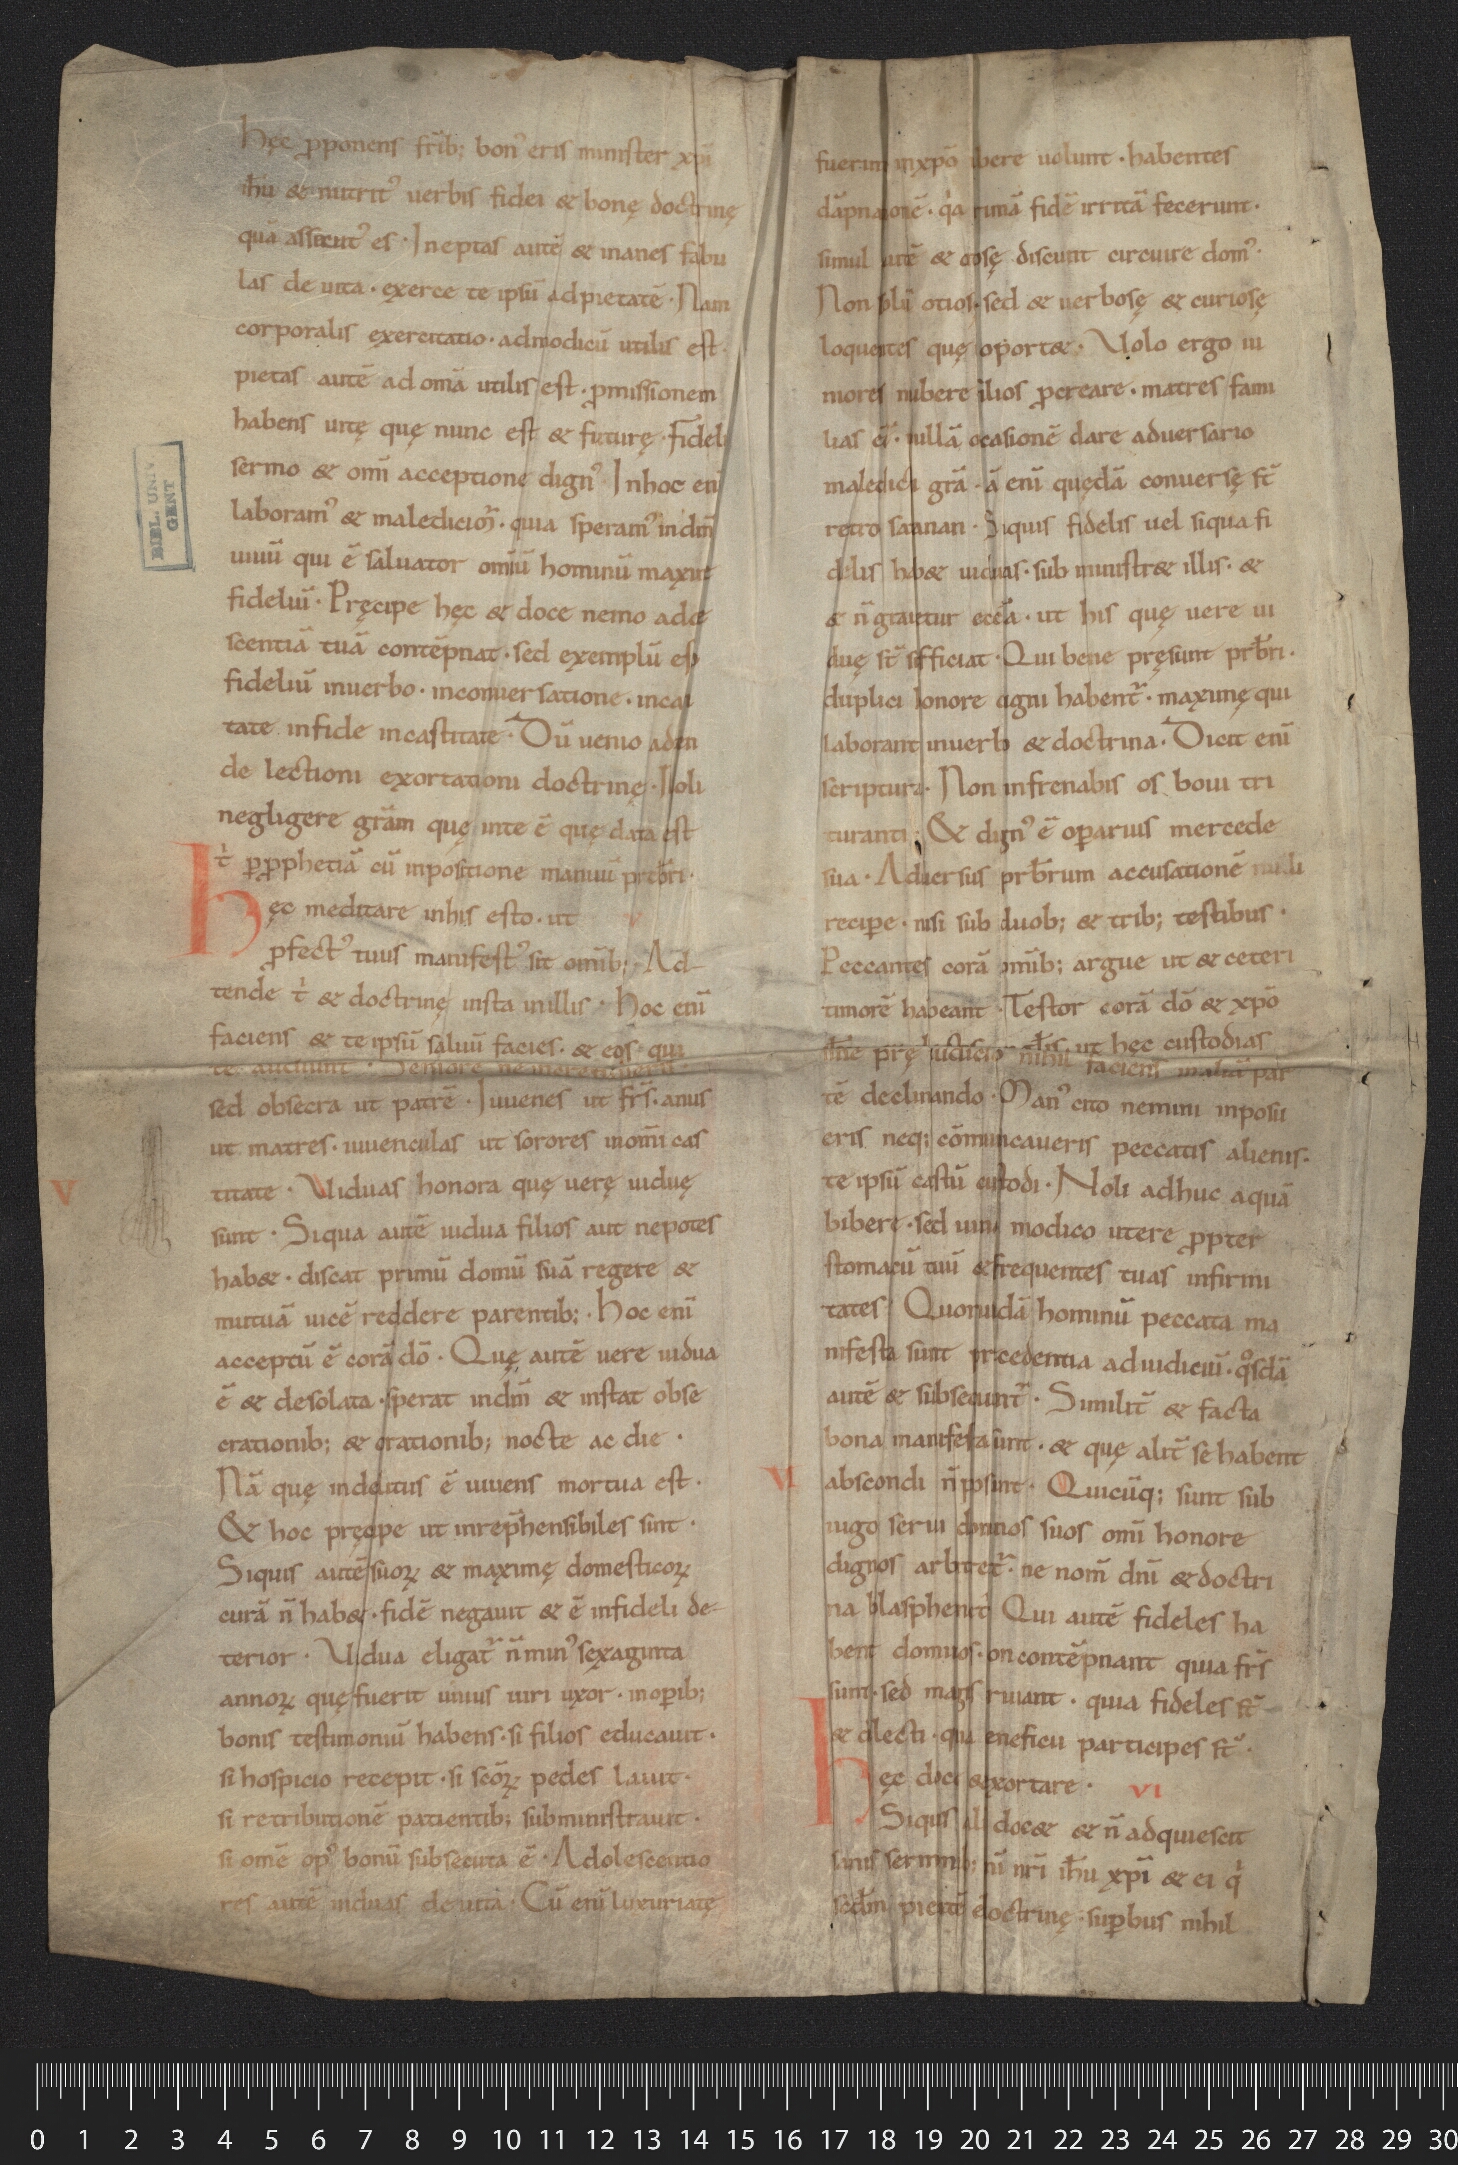 hęc ꝓponens fr̄ib; bon᾿ eris minister xp̄i
ih̄u & nutrit᾿ uerbis fidei & bonę doctrinę
quā assecut᾿ es · Ineptas autē & inanes fabu
las deuita · exerce te ipsū ad pietatē · Nam
corporalis exercitatio · ad modicū utilis est ·
pietas autē ad om̄a utilis est · ꝓmissionem
habens uitę quę nunc est & futurę · Fideli
sermo & om̄i acceptione dign᾿ · In hoc eni̅
laboram᾿ & maledicim᾿ · quia speram᾿ in dm̄
uiuū qui ē saluator om̄iū hominū maxime
fideliū · Pręcipe hęc & doce nemo adole
scentiā tuā contēpnat · sed exemplū esto
fideliū in uerbo · in conuersatione · in cari
tate in fide in castitate · Dū uenio adten
de lectioni exortationi doctrinę · Noli
negligere grām quę in te ē quę data est
t̄ ꝑ ꝓphetiā cū inpositione manuū prb̄ri ·
Hęc meditare in his esto · ut
ꝓfect᾿ tuus manifest᾿ sit om̄ib; · Ad
tende t̄ & doctrinę insta in illis · Hoc eni̅
faciens & te ipsū saluū facies · & eos qui
te audiunt · Seniorē ne increpaueris ·
sed obsecra ut patrē · Iuuenes ut fr̄s · anus
ut matres · iuuenculas ut sorores in om̄i cas
V
titate · Viduas honora quę uerę uiduę
sunt · Siqua autē uidua filios aut nepotes
hab& · discat primū domū suā regere &
mutuā uicē reddere parentib; · Hoc eni̅
acceptū ē corā dō · Quę autē uere uidua
ē & desolata · sperat in dm̄ & instat obse
crationib; & orationib; nocte ac die ·
Nā quę in delitiis ē uiuens mortua est ·
& hoc pręcipe ut inrep̄hensibiles sint ·
Siquis autē suoꝝ & maximę domesticoꝝ
curā n̄ hab& · fidē negauit & ē infideli de
terior · Vidua eligat᷑ n̄ min᾿ sexaginta
annoꝝ quę fuerit unius uiri uxor · in opib;
bonis testimoniū habens · si filios educauit ·
si hospicio recepit · si sc̄oꝝ pedes lauit ·
si retributionē patientib; subministrauit ·
si omē op᾿ bonū subsecuta ē · Adolescentio
res autē uiduas deuita · Cū eni̅ luxuriatę
fuerint in xpō nubere uolunt · habentes
dāpnationē · qa primā fidē irritā fecerunt ·
simul autē & otiosę discunt circuire dom᾿ ·
Non solū otiosę · sed & uerbosę & curiosę
loquentes quę n̄ oport& · Volo ergo iu
niores nubere filios ꝓcreare · matres fami
lias eē · nullā occasionē dare aduersario
maledicti grā · iā eni̅ quędā conuersę st̄
retro satanan · Siquis fidelis uel siqua fi
delis hab& uiduas · sub ministr& illis · &
n̄ grauetur ecc̄a · ut his quę uere ui
duę st̄ sufficiat · Qui bene pręsunt prb̄ri ·
duplici honore digni habent᷑ · maximę qui
laborant in uerbo & doctrina · Dicit eni̅
scriptura · Non infrenabis os boui tri
turanti · & dign᾿ ē operarius mercede
sua · Aduersus prb̄rum accusationē noli
recipe · nisi sub duob; & trib; testibus ·
Peccantes corā om̄ib; argue ut & ceteri
timorē habeant · Testor corā dō & xpō
ut hęc custodias
nihil faciens in aliā par
tē declinando · Man᾿ cito nemini inposu
eris neq; cōmunicaueris peccatis alienis ·
te ipsū castū custodi · Noli adhuc aquā
bibere · sed uino modico utere ꝓpter
stomacū tuū & frequentes tuas infirmi
tates · Quorundā hominū peccata ma
nifesta sunt pręcedentia ad iudiciū · qosdā
autē & subsecunt᷑ · Similit᷑ & facta
bona manifesta sunt · & quę alit᷑ se habent
VI
abscondi n̄ possunt · Quicūq; sunt sub
iugo serui dominos suos om̄i honore
dignos arbitrent᷑ · ne nom̄ dn̄i & doctri
na blasphemet᷑ Qui autē fideles ha
bent dominos · non contēpnant quia fr̄s
sunt · sed magis seruiant · quia fideles st̄
& dilecti · qui beneficii participes st̄ ·
Hęc doce & exortare · VI
Siquis alit᷑ doc& & n̄ adquiescit
sanis sermonib; dn̄i nr̄i ih̄u xp̄i & ei q̄
scd̄m pietatē doctrinę · supbus nihil
BIBL. UNIV.
GENT
0 1 2 3 4 5 6 7 8 9 10 11 12 13 14 15 16 17 18 19 20 21 22 23 24 25 26 27 28 29 30